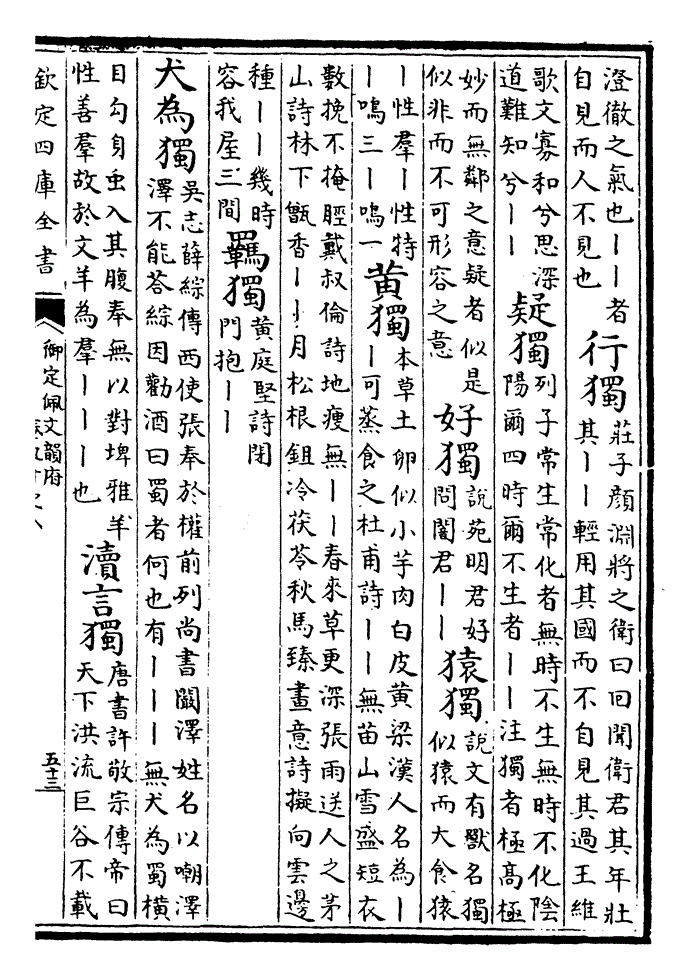 澄徹之氣也丨丨者
自見而人不見也
行獨
莊子顏淵將之衛曰回聞衛君其年壯
其丨丨輕用其國而不自見其過王維
歌文寡和兮思深
道難知兮丨丨
疑獨
列子常生常化者無時不生無時不化陰
陽爾四時爾不生者丨丨注獨者極高極
妙而無鄰之意疑者似是
似非而不可形容之意
好獨
說苑明君好
問闇君丨丨
猿獨
說文有獸名獨
似猿而大食猿
丨性羣丨性特
丨鳴三丨鳴一
黄獨
本草土卵似小芋肉白皮黄梁漢人名為丨
丨可蒸食之杜甫詩丨丨無苗山雪盛短衣
數挽不掩脛戴叔倫詩地瘦無丨丨春來草更深張雨送人之茅
山詩林下甑香丨丨月松根鉏冷茯苓秋馬臻畫意詩擬向雲邊
種丨丨幾時
容我屋三間
羈獨
黄庭堅詩閉
門抱丨丨
犬為獨
吳志薛綜傳西使張奉於權前列尚書闞澤姓名以嘲澤
澤不能荅綜因勸酒曰蜀者何也有丨丨丨無犬為蜀橫
目勾身虫入其腹奉無以對埤雅羊
性善羣故於文羊為羣丨丨丨也
瀆言獨
唐書許敬宗傳帝曰
天下洪流巨谷不載
欽定四庫全書
御定佩文韻府
五十三